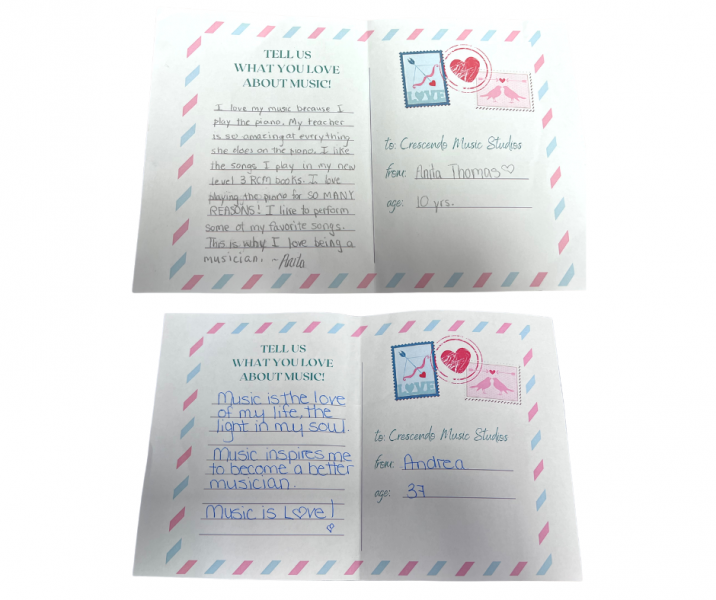 TELL US
WHAT YOU LOVE
ABOUT MUSIC!
I love my music because I
play the piano. My teacher
is so amazing at everything
she does on the piano. I like
the songs I play in my new
level 3 RCM books. I love
playing the piano for SO MANY
REASONS! I like to perform
some of my favorite songs.
This is why I love being a
musician. ~Anita
LOVE
to: Crescendo Music Studios
from: Anita Thomas♡
age: 10 yrs.
TELL US
WHAT YOU LOVE
ABOUT MUSIC!
Music is the love
of my life, the
light in my soul.
Music inspires me
to become a better
musician.
Music is L♡ve!
LOVE
to: Crescendo Music Studios
from: Andrea
age: 37